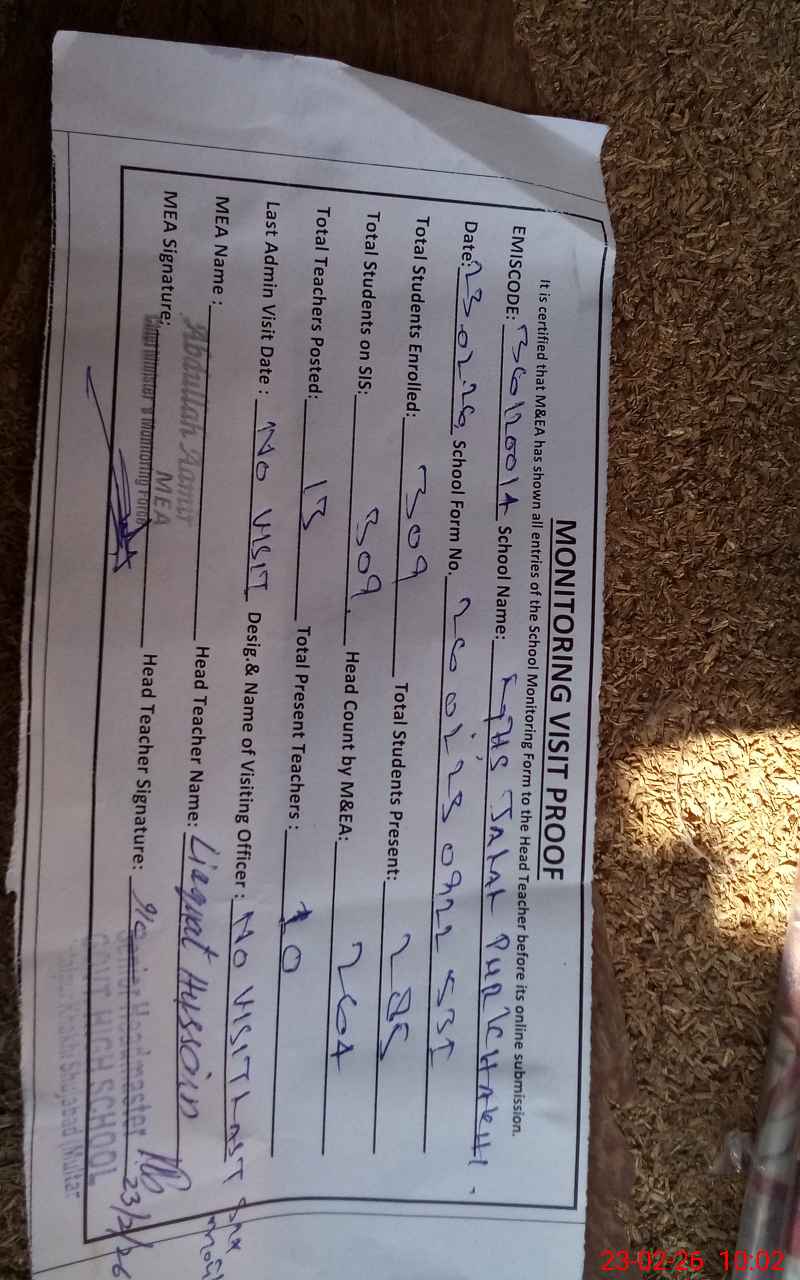 MONITORING VISIT PROOF
It is certified that M&EA has shown all entries of the School Monitoring Form to the Head Teacher before its online submission.
EMISCODE: School Name: JALAL PUR KHAKHI.
Date: 23.02.26 School Form No.
Total Students Enrolled: 309 Total Students Present: 285
Total Students on SIS: 309. Head Count by M&EA: 264
Total Teachers Posted: 13 Total Present Teachers : 10
Last Admin Visit Date : NO VISIT Desig.& Name of Visiting Officer : NO VISIT LAST
MEA Name : Abdullah Aamir Head Teacher Name: Liaquat Hussain
MEA
MEA Signature: Head Teacher Signature:
23/2/26
Senior Headmaster
GOVT HIGH SCHOOL
Khakhi Shujabad (Multan
23-02-26 10:02